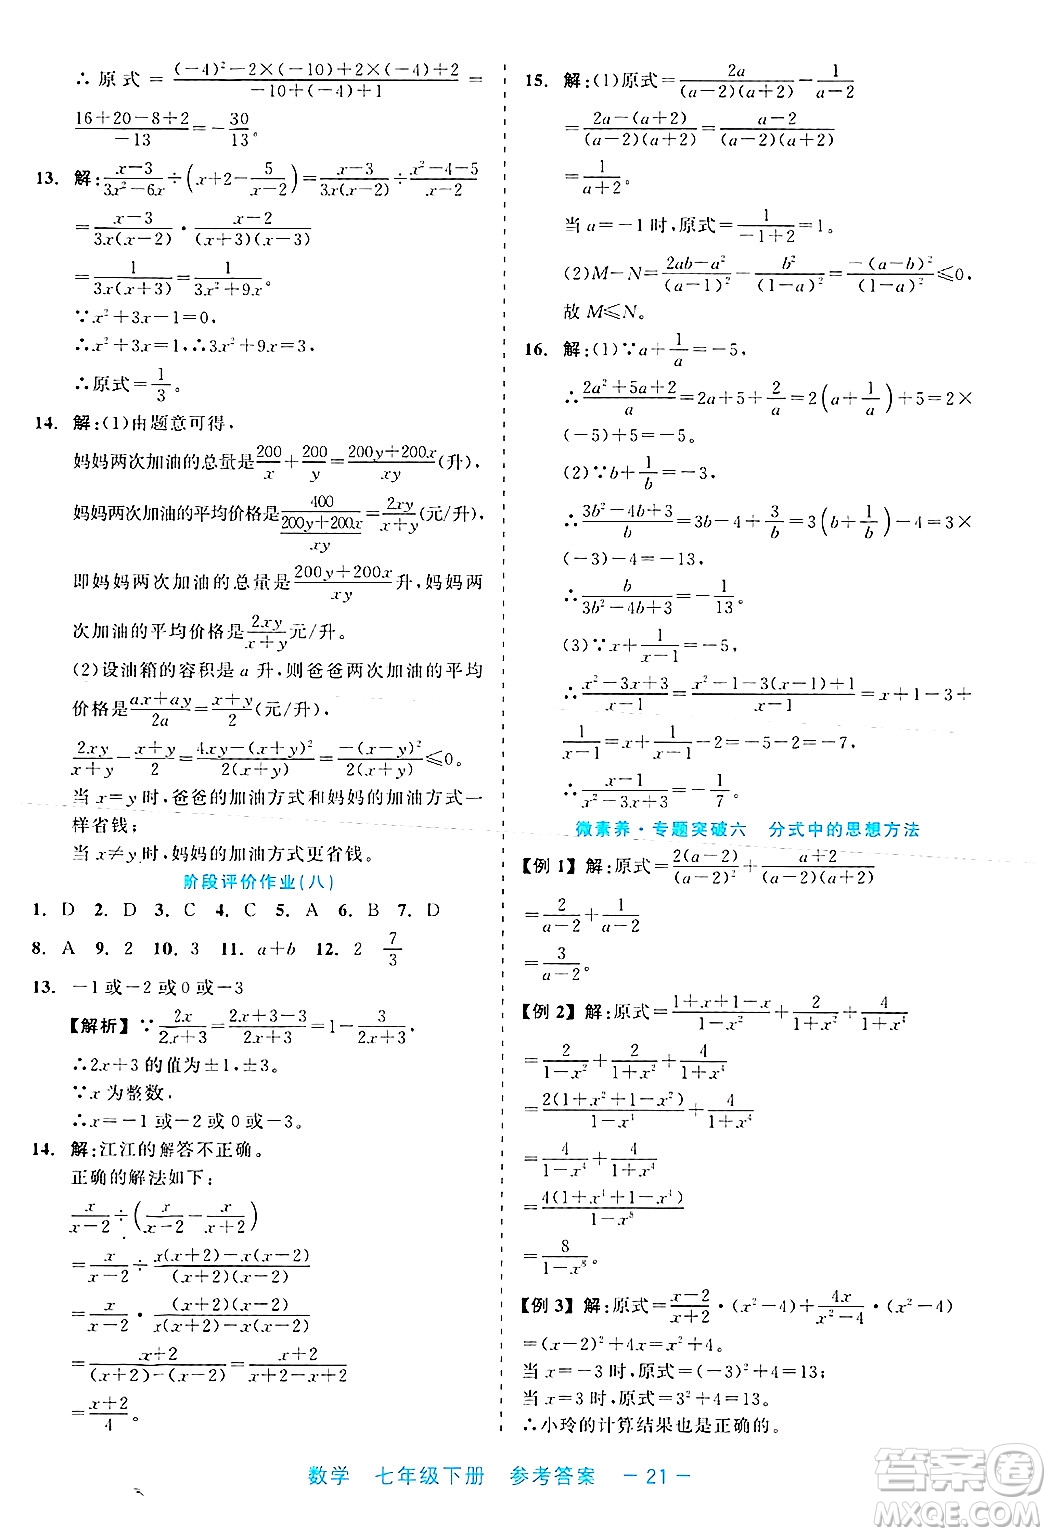 ∴原式=\frac{(-4)²-2×(-10)+2×(-4)+2}{-10+(-4)+1}=
\frac{16+20-8+2}{-13}=-\frac{30}{13}。
13. 解:\frac{x-3}{3x²-6x}÷(x+2-\frac{5}{x-2})=\frac{x-3}{3x(x-2)}÷\frac{x²-4-5}{x-2}
=\frac{x-3}{3x(x-2)}·\frac{x-2}{(x+3)(x-3)}
=\frac{1}{3x(x+3)}=\frac{1}{3x²+9x}。
∵x²+3x-1=0,
∴x²+3x=1,∴3x²+9x=3,
∴原式=\frac{1}{3}。
14. 解:(1)由题意可得,
妈妈两次加油的总量是\frac{200}{x}+\frac{200}{y}=\frac{200y+200x}{xy}(升),
妈妈两次加油的平均价格是\frac{400}{\frac{200y+200x}{xy}}=\frac{2xy}{x+y}(元/升),
即妈妈两次加油的总量是\frac{200y+200x}{xy}升,妈妈两
次加油的平均价格是\frac{2xy}{x+y}元/升。
(2)设油箱的容积是a升,则爸爸两次加油的平均
价格是\frac{ax+ay}{2a}=\frac{x+y}{2}(元/升),
\frac{2xy}{x+y}-\frac{x+y}{2}=\frac{4xy-(x+y)²}{2(x+y)}=\frac{-(x-y)²}{2(x+y)}≤0。
当x=y时,爸爸的加油方式和妈妈的加油方式一
样省钱;
当x≠y时,妈妈的加油方式更省钱。
阶段评价作业(八)
1. D 2. D 3. D 4. C 5. A 6. B 7. D
8. A 9. 2 10. 3 11. a+b 12. 2 \frac{7}{3}
13. -1或-2或0或-3
【解析】∵\frac{2x}{2x+3}=\frac{2x+3-3}{2x+3}=1-\frac{3}{2x+3},
∴2x+3的值为±1,±3。
∵x为整数,
∴x=-1或-2或0或-3。
14. 解:江江的解答不正确。
正确的解法如下:
\frac{x}{x-2}÷(\frac{x}{x-2}-\frac{x}{x+2})
=\frac{x}{x-2}÷\frac{x(x+2)-x(x-2)}{(x+2)(x-2)}
=\frac{x}{x-2}·\frac{(x+2)(x-2)}{x(x+2)-x(x-2)}
=\frac{x+2}{(x+2)-(x-2)}
=\frac{x+2}{4}。
15. 解:(1)原式=\frac{2a}{(a-2)(a+2)}-\frac{1}{a-2}
=\frac{2a-(a+2)}{(a-2)(a+2)}=\frac{a-2}{(a-2)(a+2)}
=\frac{1}{a+2}。
当a=-1时,原式=\frac{1}{-1+2}=1。
(2)M-N=\frac{2ab-a²}{(a-1)²}-\frac{b²}{(1-a)²}=\frac{-(a-b)²}{(1-a)²}≤0,
故M≤N。
16. 解:(1)∵a+\frac{1}{a}=-5,
∴\frac{2a²+5a+2}{a}=2a+5+\frac{2}{a}=2(a+\frac{1}{a})+5=2×
(-5)+5=-5。
(2)∵b+\frac{1}{b}=-3,
∴\frac{3b²-4b+3}{b}=3b-4+\frac{3}{b}=3(b+\frac{1}{b})-4=3×
(-3)-4=-13,
∴\frac{b}{3b²-4b+3}=-\frac{1}{13}。
(3)∵x+\frac{1}{x-1}=-5,
∴\frac{x²-3x+3}{x-1}=\frac{x²-1-3(x-1)+1}{x-1}=x+1-3+
\frac{1}{x-1}=x+\frac{1}{x-1}-2=-5-2=-7,
∴\frac{x-1}{x²-3x+3}=-\frac{1}{7}。
微素养·专题突破六 分式中的思想方法
【例1】解:原式=\frac{2(a-2)}{(a-2)²}+\frac{a+2}{(a-2)(a+2)}
=\frac{2}{a-2}+\frac{1}{a-2}
=\frac{3}{a-2}。
【例2】解:原式=\frac{1+x+1-x}{1-x²}+\frac{2}{1+x²}+\frac{4}{1+x⁴}
=\frac{2}{1-x²}+\frac{2}{1+x²}+\frac{4}{1+x⁴}
=\frac{2(1+x²+1-x²)}{1-x⁴}+\frac{4}{1+x⁴}
=\frac{4}{1-x⁴}+\frac{4}{1+x⁴}
=\frac{4(1+x⁴+1-x⁴)}{1-x⁸}
=\frac{8}{1-x⁸}。
【例3】解:原式=\frac{x-2}{x+2}·(x²-4)+\frac{4x}{x²-4}·(x²-4)
=(x-2)²+4x=x²+4。
当x=-3时,原式=(-3)²+4=13。
当x=3时,原式=3²+4=13。
∴小玲的计算结果也是正确的。
数学 七年级下册 参考答案 -21-
答案圈
MXQE.COM